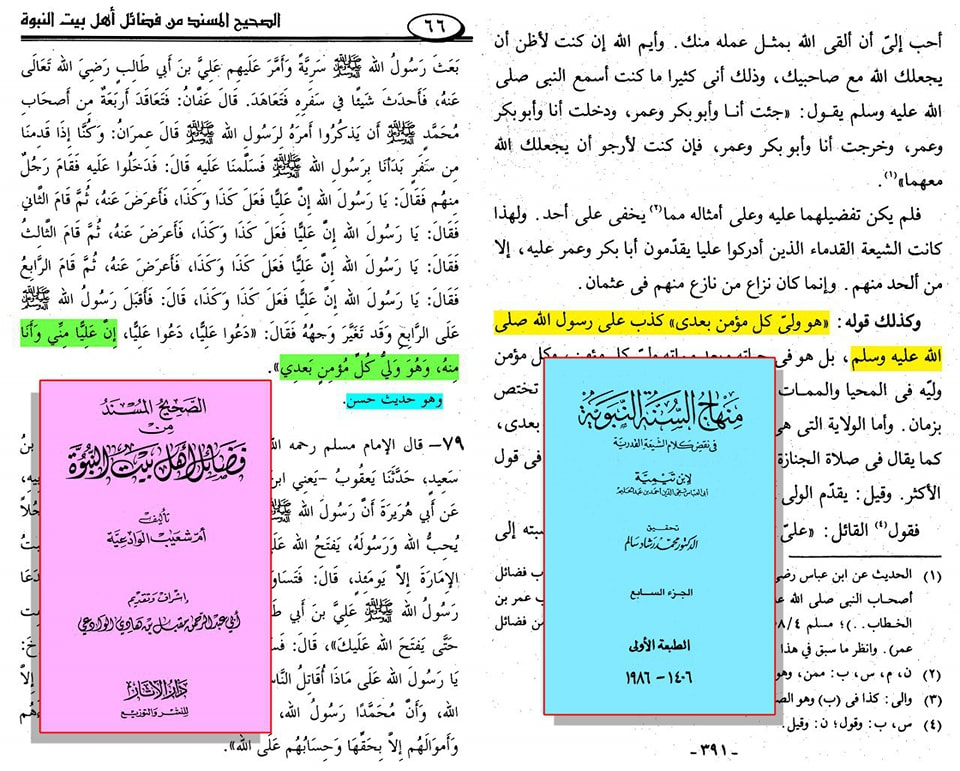 أحب إلىّ أن ألقى الله بمثل عمله منك. وأيم الله إن كنت لأظن أن
يجعلك الله مع صاحبيك، وذلك أنى كثيرا ما كنت أسمع النبى صلى
الله عليه وسلم يقول: «جئت أنا وأبو بكر وعمر، ودخلت أنا وأبو بكر
وعمر، وخرجت أنا وأبو بكر وعمر، فإن كنت لأرجو أن يجعلك الله
معهما»(١).
فلم يكن تفضيلهما عليه وعلى أمثاله مما(٢) يخفى على أحد. ولهذا
كانت الشيعة القدماء الذين أدركوا عليا يقدّمون أبا بكر وعمر عليه، إلا
من ألحد منهم. وإنما كان نزاع من نازع منهم فى عثمان.
وكذلك قوله: «هو ولىّ كل مؤمن بعدى» كذب على رسول الله صلى
الله عليه وسلم، بل هو فى حياته وبعد مماته ولىّ كل مؤمن، وكل مؤمن
وليّه فى المحيا والممات
تختص
بزمان. وأما الولاية التى هى
بعدى،
كما يقال فى صلاة الجنازة
فى قول
الأكثر. وقيل: يقدّم الوالى
فقول(٤) القائل: «علىّ
نسبته إلى
(١) الحديث عن ابن عباس رضى
ب فضائل
أصحاب النبى صلى الله عل
ب عمر بن
الخطاب..)؛ مسلم ٤/
من فضائل
عمر). وانظر ما سبق فى هذا
(٢) ن، م، س، ب: ممن، وهو
(٣) والى: كذا فى (ب) وهو الص
(٤) س، ب: وقول؛ ن: وقيل.
- ٣٩١ -
منهاج السنة النبوية
فى نقض كلام الشيعة القدرية
لابن تيمية
أبى العباس تقى الدين أحمد بن عبد الحليم
تحقيق
الدكتور محمد رشاد سالم
الجزء السابع
الطبعة الأولى
١٤٠٦ - ١٩٨٦
٦٦
الصحيح المسند من فضائل أهل بيت النبوة
بَعَثَ رَسُولُ الله ﷺ سَرِيَّةً وَأَمَّرَ عَلَيهِم عَلِيَّ بنَ أَبِي طَالِبٍ رَضِيَ الله تَعَالَى
عَنهُ، فَأَحدَثَ شَيئًا فِي سَفَرِهِ فَتَعَاهَدَ. قَالَ عَفَّانُ: فَتَعَاقَدَ أَربَعَةٌ مِن أَصحَابِ
مُحَمَّدٍ ﷺ أَن يَذكُرُوا أَمرَهُ لِرَسُولِ الله ﷺ قَالَ عِمرَانُ: وَكُنَّا إِذَا قَدِمنَا
مِن سَفَرٍ بَدَأنَا بِرَسُولِ الله ﷺ فَسَلَّمنَا عَلَيهِ قَالَ: فَدَخَلُوا عَلَيهِ فَقَامَ رَجُلٌ
مِنهُم فَقَالَ: يَا رَسُولَ الله إِنَّ عَلِيًّا فَعَلَ كَذَا وَكَذَا، فَأَعرَضَ عَنهُ، ثُمَّ قَامَ الثَّانِي
فَقَالَ: يَا رَسُولَ الله إِنَّ عَلِيًّا فَعَلَ كَذَا وَكَذَا، فَأَعرَضَ عَنهُ، ثُمَّ قَامَ الثَّالِثُ
فَقَالَ: يَا رَسُولَ الله إِنَّ عَلِيًّا فَعَلَ كَذَا وَكَذَا، فَأَعرَضَ عَنهُ، ثُمَّ قَامَ الرَّابِعُ
فَقَالَ: يَا رَسُولَ الله إِنَّ عَلِيًّا فَعَلَ كَذَا وَكَذَا، قَالَ: فَأَقبَلَ رَسُولُ الله ﷺ
عَلَى الرَّابِعِ وَقَد تَغَيَّرَ وَجهُهُ فَقَالَ: «دَعُوا عَلِيًّا، دَعُوا عَلِيًّا، إِنَّ عَلِيًّا مِنِّي وَأَنَا
مِنهُ، وَهُوَ وَلِيُّ كُلِّ مُؤمِنٍ بَعدِي».
وهو حديث حسن.
٧٩- قال الإمام مسلم رحمه الله
سَعِيدٍ، حَدَّثَنَا يَعقُوبُ -يَعنِي ابنَ
عَن أَبِي هُرَيرَةَ أَنَّ رَسُولَ الله
يُحِبُّ اللهَ وَرَسُولَهُ، يَفتَحُ الله عَلَ
الإِمَارَةَ إِلاَّ يَومَئِذٍ، قَالَ: فَتَسَاوَ
رَسُولُ الله ﷺ عَلِيَّ بنَ أَبِي طَا
حَتَّى يَفتَحَ الله عَلَيكَ»، قَالَ: فَسَ
يَا رَسُولَ الله عَلَى مَاذَا أُقَاتِلُ النَّاسَ
الله، وَأَنَّ مُحَمَّدًا رَسُولُ الله،
وَأَموَالَهُم إِلاَّ بِحَقِّهَا وَحِسَابُهُم عَلَى الله».
الصحيح المسند
من
فضائل أهل بيت النبوة
تأليف
أم شعيب الوادعية
إشراف وتقديم
أبي عبد الرحمن مقبل بن هادي الوادعي
دار الآثار
للنشر والتوزيع